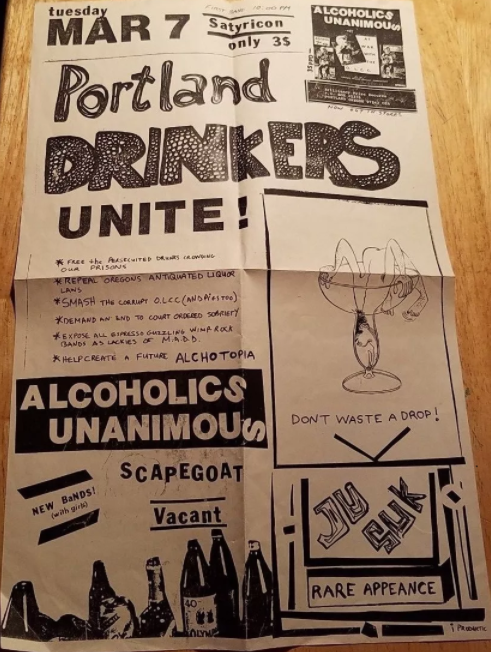 tuesday
MAR 7
FIRST BAND 10:00 PM
Satyricon
only 3$
ALCOHOLICS
UNANIMOUS
NOW OUT IN STORES
Portland
DRINKERS
UNITE!
* FREE the PERSECUTED DRUNKS CROWDING
OUR PRISONS
* REPEAL OREGONS ANTIQUATED LIQUOR
LAWS
* SMASH THE CORRUPT O.L.C.C (AND PIGS TOO)
* DEMAND AN END TO COURT ORDERED SOBRIETY
* EXPOSE ALL ESPRESSO GUZZLING WIMP ROCK
BANDS AS LACKIES OF M.A.D.D.
* HELP CREATE A FUTURE ALCHOTOPIA
ALCOHOLICS
UNANIMOUS
DONT WASTE A DROP!
SCAPEGOAT
NEW BaNDS!
(with girls)
Vacant
40
OLYM
JU
SUK
RARE APPEANCE